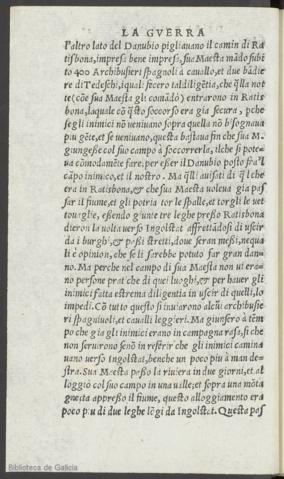 LA GVERRA
l'altro lato del Danubio pigliauano il camin di Ra
tisbona, impresa bene impresa, sua Maesta mãdo subi
to 400 Archibusieri spagnoli à cauallo, et due bãdie
re di Tedeschi, iquali fecero tal diligẽtia, che q̃lla not
te (cõe sua Maesta gli comãdò) entrarono in Ratis
bona, laquale cõ q̃sto soccorso era gia secura, pche
se gli inimici nõ veniuano sopra quella nõ bisognaua
piu gẽte, et se veniuano, questa bastaua fin che sua M.
giungesse col suo campo à soccorrerla, ilche si pote-
ua cõmodamẽte fare, per esser il Danubio posto fra'l
cãpo inimico, et il nostro. Ma q̃lli auisati di q̃l che
era in Ratisbona, & che sua Maesta uoleua gia pas
sar il fiume, et gli potria tor le spalle, et torgli le vet
touaglie, essendo giunte tre leghe presso Ratisbona
dieron la uolta uerso Ingolstat affrettãdosi di uscir
da i burghi, & passi stretti, doue seran messi, nequa
li è opinion, che se li sarebbe potuto far gran dan-
no. Ma perche nel campo di sua Maesta non ui era-
no persone pratiche di quei luoghi, & per hauer gli
inimici fatta estrema diligentia in uscir di quelli, lo
impedì. Cõ tutto questo si inuiarono alcuni archibusie
ri spagniuoli, et caualli leggieri. Ma giunsero à tẽm
po che gia gli inimici erano in campagna rasa, si che
non seruirono senõ in referir che gli inimici camina
uano uerso Ingolstat, benche un poco piu à man de-
stra. Sua Maesta passo la riuiera in due giorni, et al
loggiò col suo campo in una ualle; et sopra una mõta
gneita appresso il fiume, questo alloggiamento era
poco piu di due leghe lõgi da Ingolstat. Questa pas
Biblioteca de Galicia